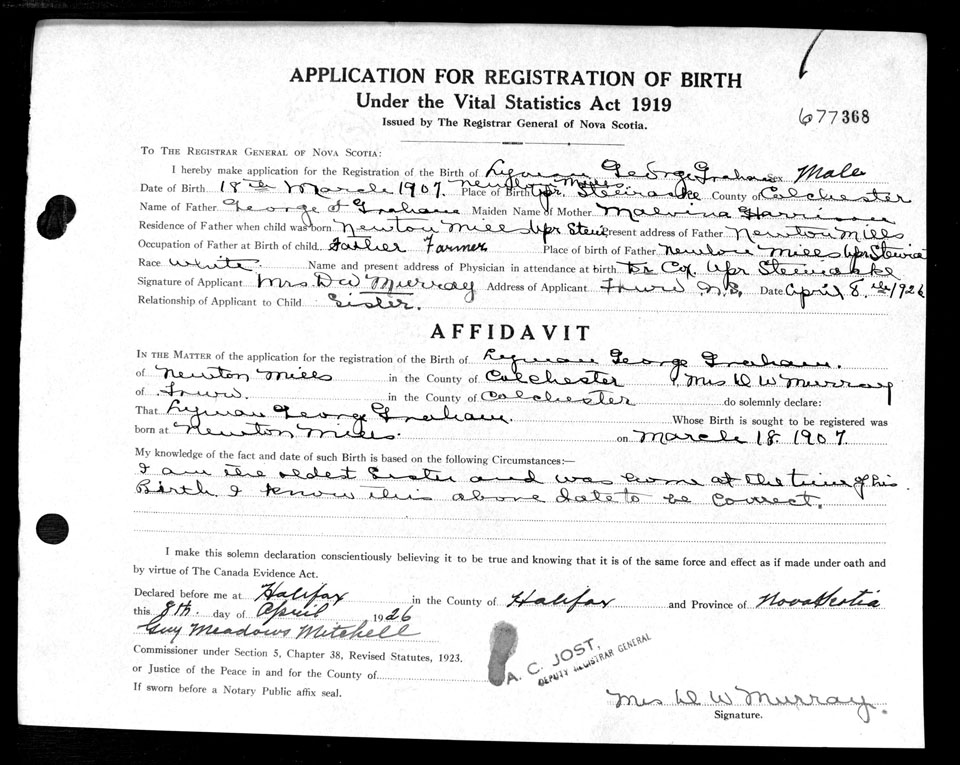 APPLICATION FOR REGISTRATION OF BIRTH
Under the Vital Statistics Act 1919
Issued by The Registrar General of Nova Scotia.
677368
TO THE REGISTRAR GENERAL OF NOVA SCOTIA:
I hereby make application for the Registration of the Birth of Lyman George Graham Sex Male
Date of Birth 18th March 1907. Place of Birth Newton Mills Upr. Stewiacke County of Colchester
Name of Father George Graham Maiden Name of Mother Malvina Harrison
Residence of Father when child was born Newton Mill Upr Stew Present address of Father Newton Mills
Occupation of Father at Birth of child. Father Farmer Place of birth of Father Newton Mills Upr Stewia
Race White Name and present address of Physician in attendance at birth Dr Cox Upr Stewiacke
Signature of Applicant Mrs. D W Murray Address of Applicant Truro N.S. Date April 8th 1926
Relationship of Applicant to Child Sister.
AFFIDAVIT
IN THE MATTER of the application for the registration of the Birth of Lyman George Graham.
of Newton Mills in the County of Colchester I Mrs D W Murray
of Truro. in the County of Colchester do solemnly declare:
That Lyman George Graham. Whose Birth is sought to be registered was
born at Newton Mills. on March 18. 1907
My knowledge of the fact and date of such Birth is based on the following Circumstances:—
I am the oldest Sister and was home at the time of his
Birth I know this above date to be Correct.
I make this solemn declaration conscientiously believing it to be true and knowing that it is of the same force and effect as if made under oath and
by virtue of The Canada Evidence Act.
Declared before me at Halifax in the County of Halifax and Province of Nova Scotia
this 8th. day of April 1926
Guy Meadows Mitchell
Commissioner under Section 5, Chapter 38, Revised Statutes, 1923.
or Justice of the Peace in and for the County of
If sworn before a Notary Public affix seal.
A. C. JOST,
DEPUTY REGISTRAR GENERAL
Mrs D W Murray.
Signature.